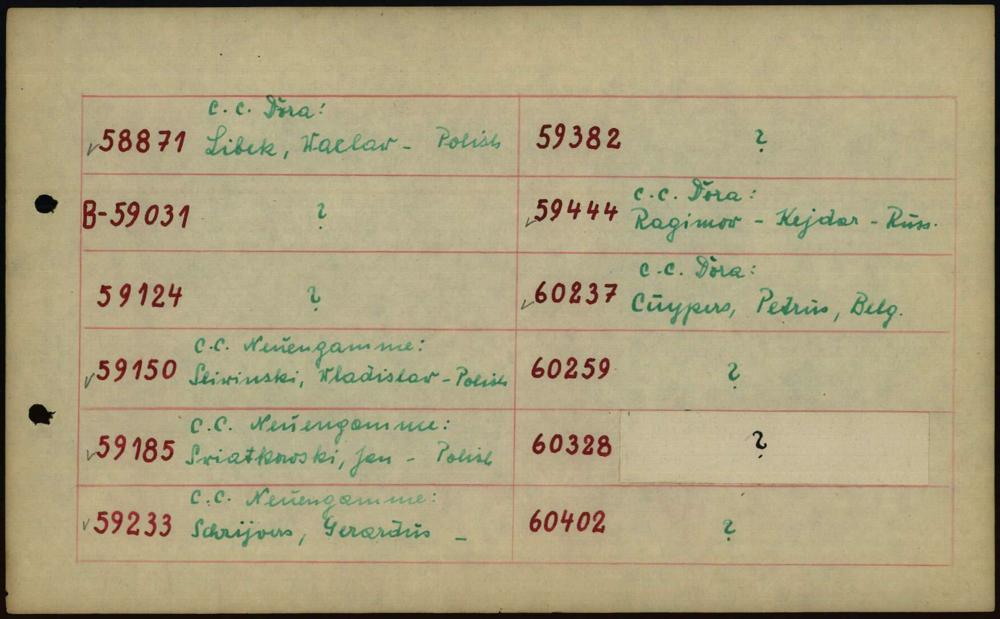 c.c. Dora:
✓58871 Libek, Waclaw - Polish
B-59031 ?
59124 ?
c.c. Neuengamme:
✓59150 Sliwinski, Wladislaw - Polish
c.c. Neuengamme:
✓59185 Swiatkowski, Jan - Polish
c.c. Neuengamme:
✓59233 Schrijvers, Gerardus -
59382 ?
c.c. Dora:
✓59444 Ragimow - Kejdar - Russ.
c.c. Dora:
✓60237 Cuypers, Petrus, Belg.
60259 ?
60328 ?
60402 ?